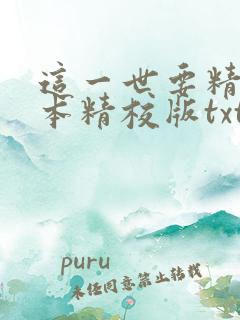 這一世要精
本精校版txt
puru
未经同意禁止转载